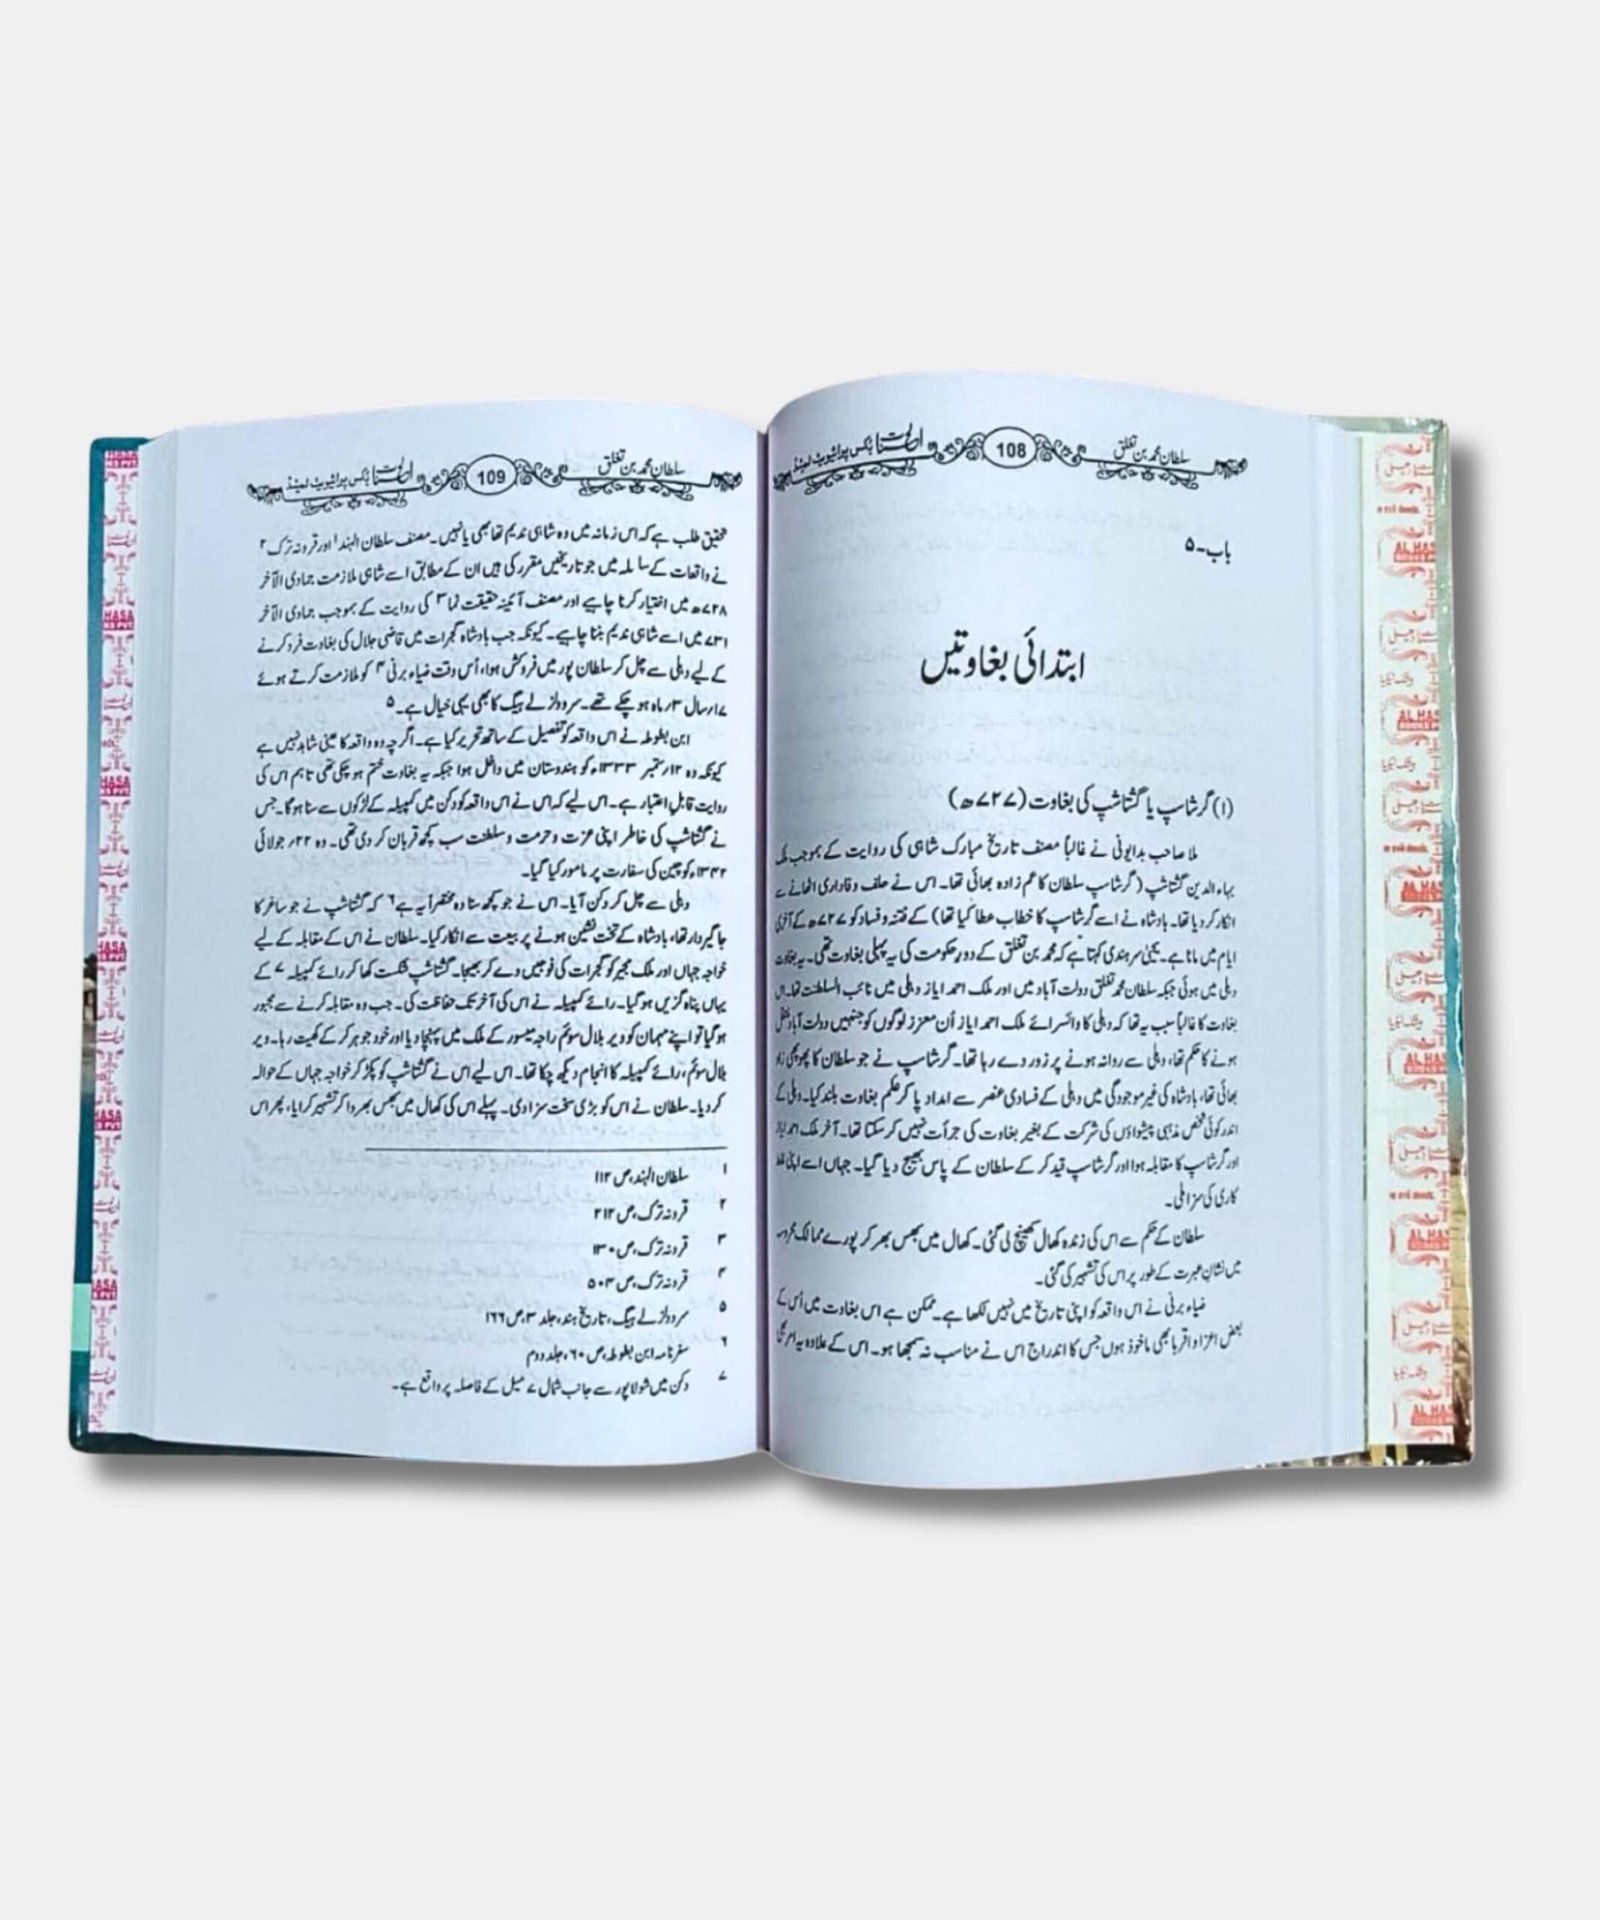 سلطان محمد بن تغلق
108
الحسنات بکس پرائیویٹ لمیٹڈ
باب-۵
ابتدائی بغاوتیں
(۱) گرشاسپ یا گشتاشپ کی بغاوت (۷۲۷ھ)
ملا صاحب بدایونی نے غالباً مصنف تاریخ مبارک شاہی کی روایت کے بموجب ملک
بہاء الدین گشتاشپ (گرشاسپ سلطان کا عم زادہ بھائی تھا۔ اس نے حلف وفاداری اٹھانے سے
انکار کر دیا تھا۔ بادشاہ نے اسے گرشاسپ کا خطاب عطا کیا تھا) کے فتنہ و فساد کو ۷۲۷ھ کے آخری
ایام میں مانا ہے۔ یحییٰ سرہندی کہتا ہے کہ محمد بن تغلق کے دورِ حکومت کی یہ پہلی بغاوت تھی۔ یہ بغاوت
دہلی میں ہوئی جبکہ سلطان محمد تغلق دولت آباد میں اور ملک احمد ایاز دہلی میں نائب السلطنت تھا۔ اس
بغاوت کا غالباً سبب یہ تھا کہ دہلی کا وائسرائے ملک احمد ایاز اُن معزز لوگوں کو جنہیں دولت آباد منتقل
ہونے کا حکم تھا، دہلی سے روانہ ہونے پر زور دے رہا تھا۔ گرشاسپ نے جو سلطان کا پھوپھی زاد
بھائی تھا، بادشاہ کی غیر موجودگی میں دہلی کے فسادی عنصر سے امداد پا کر علم بغاوت بلند کیا۔ دہلی کے
اندر کوئی شخص مذہبی پیشواؤں کی شرکت کے بغیر بغاوت کی جرأت نہیں کر سکتا تھا۔ آخر ملک احمد ایاز
اور گرشاسپ کا مقابلہ ہوا اور گرشاسپ قید کر کے سلطان کے پاس بھیج دیا گیا۔ جہاں اسے اپنی غلط
کاری کی سزا ملی۔
سلطان کے حکم سے اس کی زندہ کھال کھینچ لی گئی۔ کھال میں بھس بھر کر پورے ممالک محروسہ
میں نشانِ عبرت کے طور پر اس کی تشہیر کی گئی۔
ضیاء برنی نے اس واقعہ کو اپنی تاریخ میں نہیں لکھا ہے۔ ممکن ہے اس بغاوت میں اُس کے
بعض اعزا و اقربا بھی ماخوذ ہوں جس کا اندراج اس نے مناسب نہ سمجھا ہو۔ اس کے علاوہ یہ امر بھی
سلطان محمد بن تغلق
109
الحسنات بکس پرائیویٹ لمیٹڈ
تحقیق طلب ہے کہ اس زمانہ میں وہ شاہی ندیم تھا بھی یا نہیں۔ مصنف سلطان الہند۱ اور قرونہ ترک۲
نے واقعات کے سلسلہ میں جو تاریخیں مقرر کی ہیں ان کے مطابق اسے شاہی ملازمت جمادی الآخر
۷۲۸ھ میں اختیار کرنا چاہیے اور مصنف آئینہ حقیقت نما۳ کی روایت کے بموجب جمادی الآخر
۷۳۱ میں اسے شاہی ندیم بننا چاہیے۔ کیونکہ جب بادشاہ گجرات میں قاضی جلال کی بغاوت فرو کرنے
کے لیے دہلی سے چل کر سلطان پور میں فروکش ہوا، اُس وقت ضیاء برنی۴ کو ملازمت کرتے ہوئے
۱۷ سال ۳ ماہ ہو چکے تھے۔ سر وولزلے ہیگ کا بھی یہی خیال ہے۔۵
ابن بطوطہ نے اس واقعہ کو تفصیل کے ساتھ تحریر کیا ہے۔ اگرچہ وہ واقعہ کا عینی شاہد نہیں ہے
کیونکہ وہ ۱۲؍ ستمبر ۱۳۳۳ء کو ہندوستان میں داخل ہوا جبکہ یہ بغاوت ختم ہو چکی تھی تاہم اس کی
روایت قابلِ اعتبار ہے۔ اس لیے کہ اس نے اس واقعہ کو دکن میں کمپیلہ کے لڑکوں سے سنا ہوگا۔ جس
نے گشتاشپ کی خاطر اپنی عزت و حرمت و سلطنت سب کچھ قربان کر دی تھی۔ وہ ۲۲؍ جولائی
۱۳۴۲ء کو چین کی سفارت پر مامور کیا گیا۔
دہلی سے چل کر دکن آیا۔ اس نے جو کچھ سنا وہ مختصراً یہ ہے۶ کہ گشتاشپ نے جو ساغر کا
جاگیردار تھا، بادشاہ کے تخت نشین ہونے پر بیعت سے انکار کیا۔ سلطان نے اس کے مقابلہ کے لیے
خواجہ جہاں اور ملک مجیر کو گجرات کی فوجیں دے کر بھیجا۔ گشتاشپ شکست کھا کر رائے کمپیلہ۷ کے
یہاں پناہ گزیں ہو گیا۔ رائے کمپیلہ نے اس کی آخر تک حفاظت کی۔ جب وہ مقابلہ کرنے سے مجبور
ہو گیا تو اپنے مہمان کو ویر بلال سوئم راجہ میسور کے ملک میں پہنچا دیا اور خود جوہر کر کے کھیت رہا۔ ویر
بلال سوئم، رائے کمپیلہ کا انجام دیکھ چکا تھا۔ اس لیے اس نے گشتاشپ کو پکڑ کر خواجہ جہاں کے حوالہ
کر دیا۔ سلطان نے اس کو بڑی سخت سزا دی۔ پہلے اس کی کھال میں بھس بھروا کر تشہیر کرایا، پھر اس
۱ سلطان الہند، ص ۱۱۲
۲ قرونہ ترک، ص ۲۱۲
۳ قرونہ ترک، ص ۱۳۰
۴ قرونہ ترک، ص ۵۰۴
۵ سر وولزلے ہیگ، تاریخ ہند، جلد ۳، ص ۱۶۶
۶ سفرنامہ ابن بطوطہ، ص ۶۰، جلد دوم
۷ دکن میں شولاپور سے جانب شمال ۷ میل کے فاصلہ پر واقع ہے۔